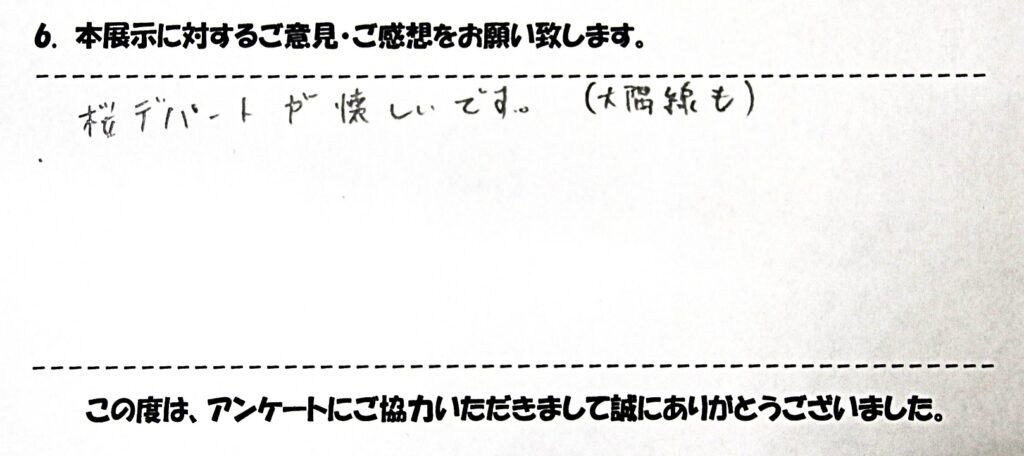 6. 本展示に対するご意見・ご感想をお願い致します。
桜デパートが懐しいです。(大隅線も)
この度は、アンケートにご協力いただきまして誠にありがとうございました。